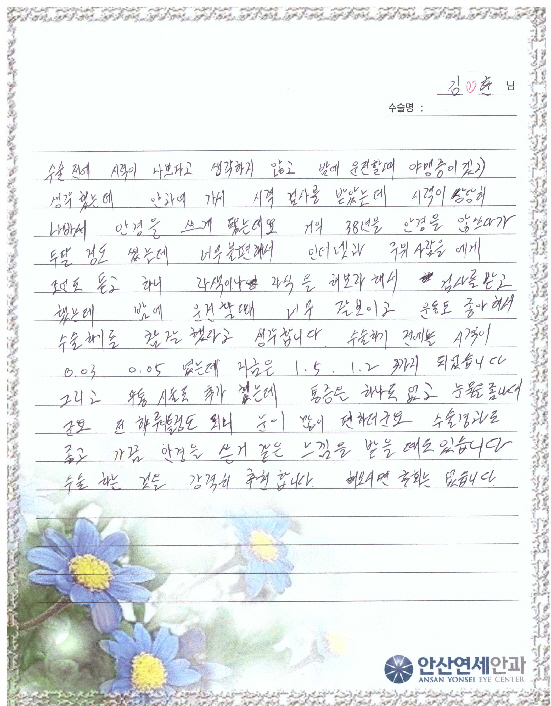 김♡훈 님
수술명 :
수술 전에 시력이 나쁘다고 생각하지 않고 밤에 운전할때 야맹증이 있고
생각했는데 안과에 가서 시력 검사를 받았는데 시력이 상당히
나빠서 안경을 쓰게 됐는데요 거의 38년을 안경을 않쓰다가
두달 정도 썼는데 너무 불편해서 인터넷과 주위 사람들에게
조언도 듣고 하니 라식을 해보라 해서 검사를 받고
했는데 밤에 운전 할때 너무 잘보이고 운동도 좋아해서
수술하기를 참 잘 했다고 생각합니다. 수술하기 전에는 시력이
0.03 0.05 였는데 지금은 1.5, 1.2 까지 되었습니다
그리고 무통 시술로 추가 했는데 통증은 하나도 없고 눈물을 좀
전 하루 정도 되니 눈이 많이 편하더군요 수술결과도
좋고 가끔 안경을 쓴거 같은 느낌을 받을 때도 있습니다
수술 하는 것을 강력히 추천 합니다 후회는 없습니다
안산연세안과
ANSAN YONSEI EYE CENTER